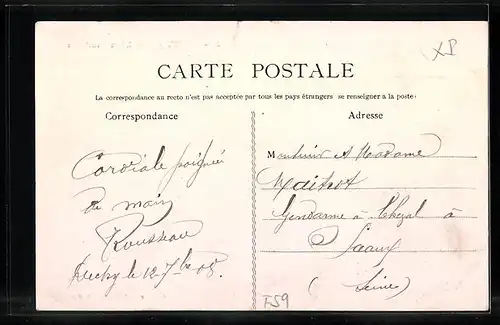 XP
CARTE POSTALE
La correspondance au recto n'est pas acceptée par tous les pays étrangers se renseigner à la poste
Correspondance
Adresse
Cordiale poignée
de main
Rousseau
le 12 7bre 05
Monsieur et Madame
Gendarme à Cheval à
Sceaux
(Seine)
F59